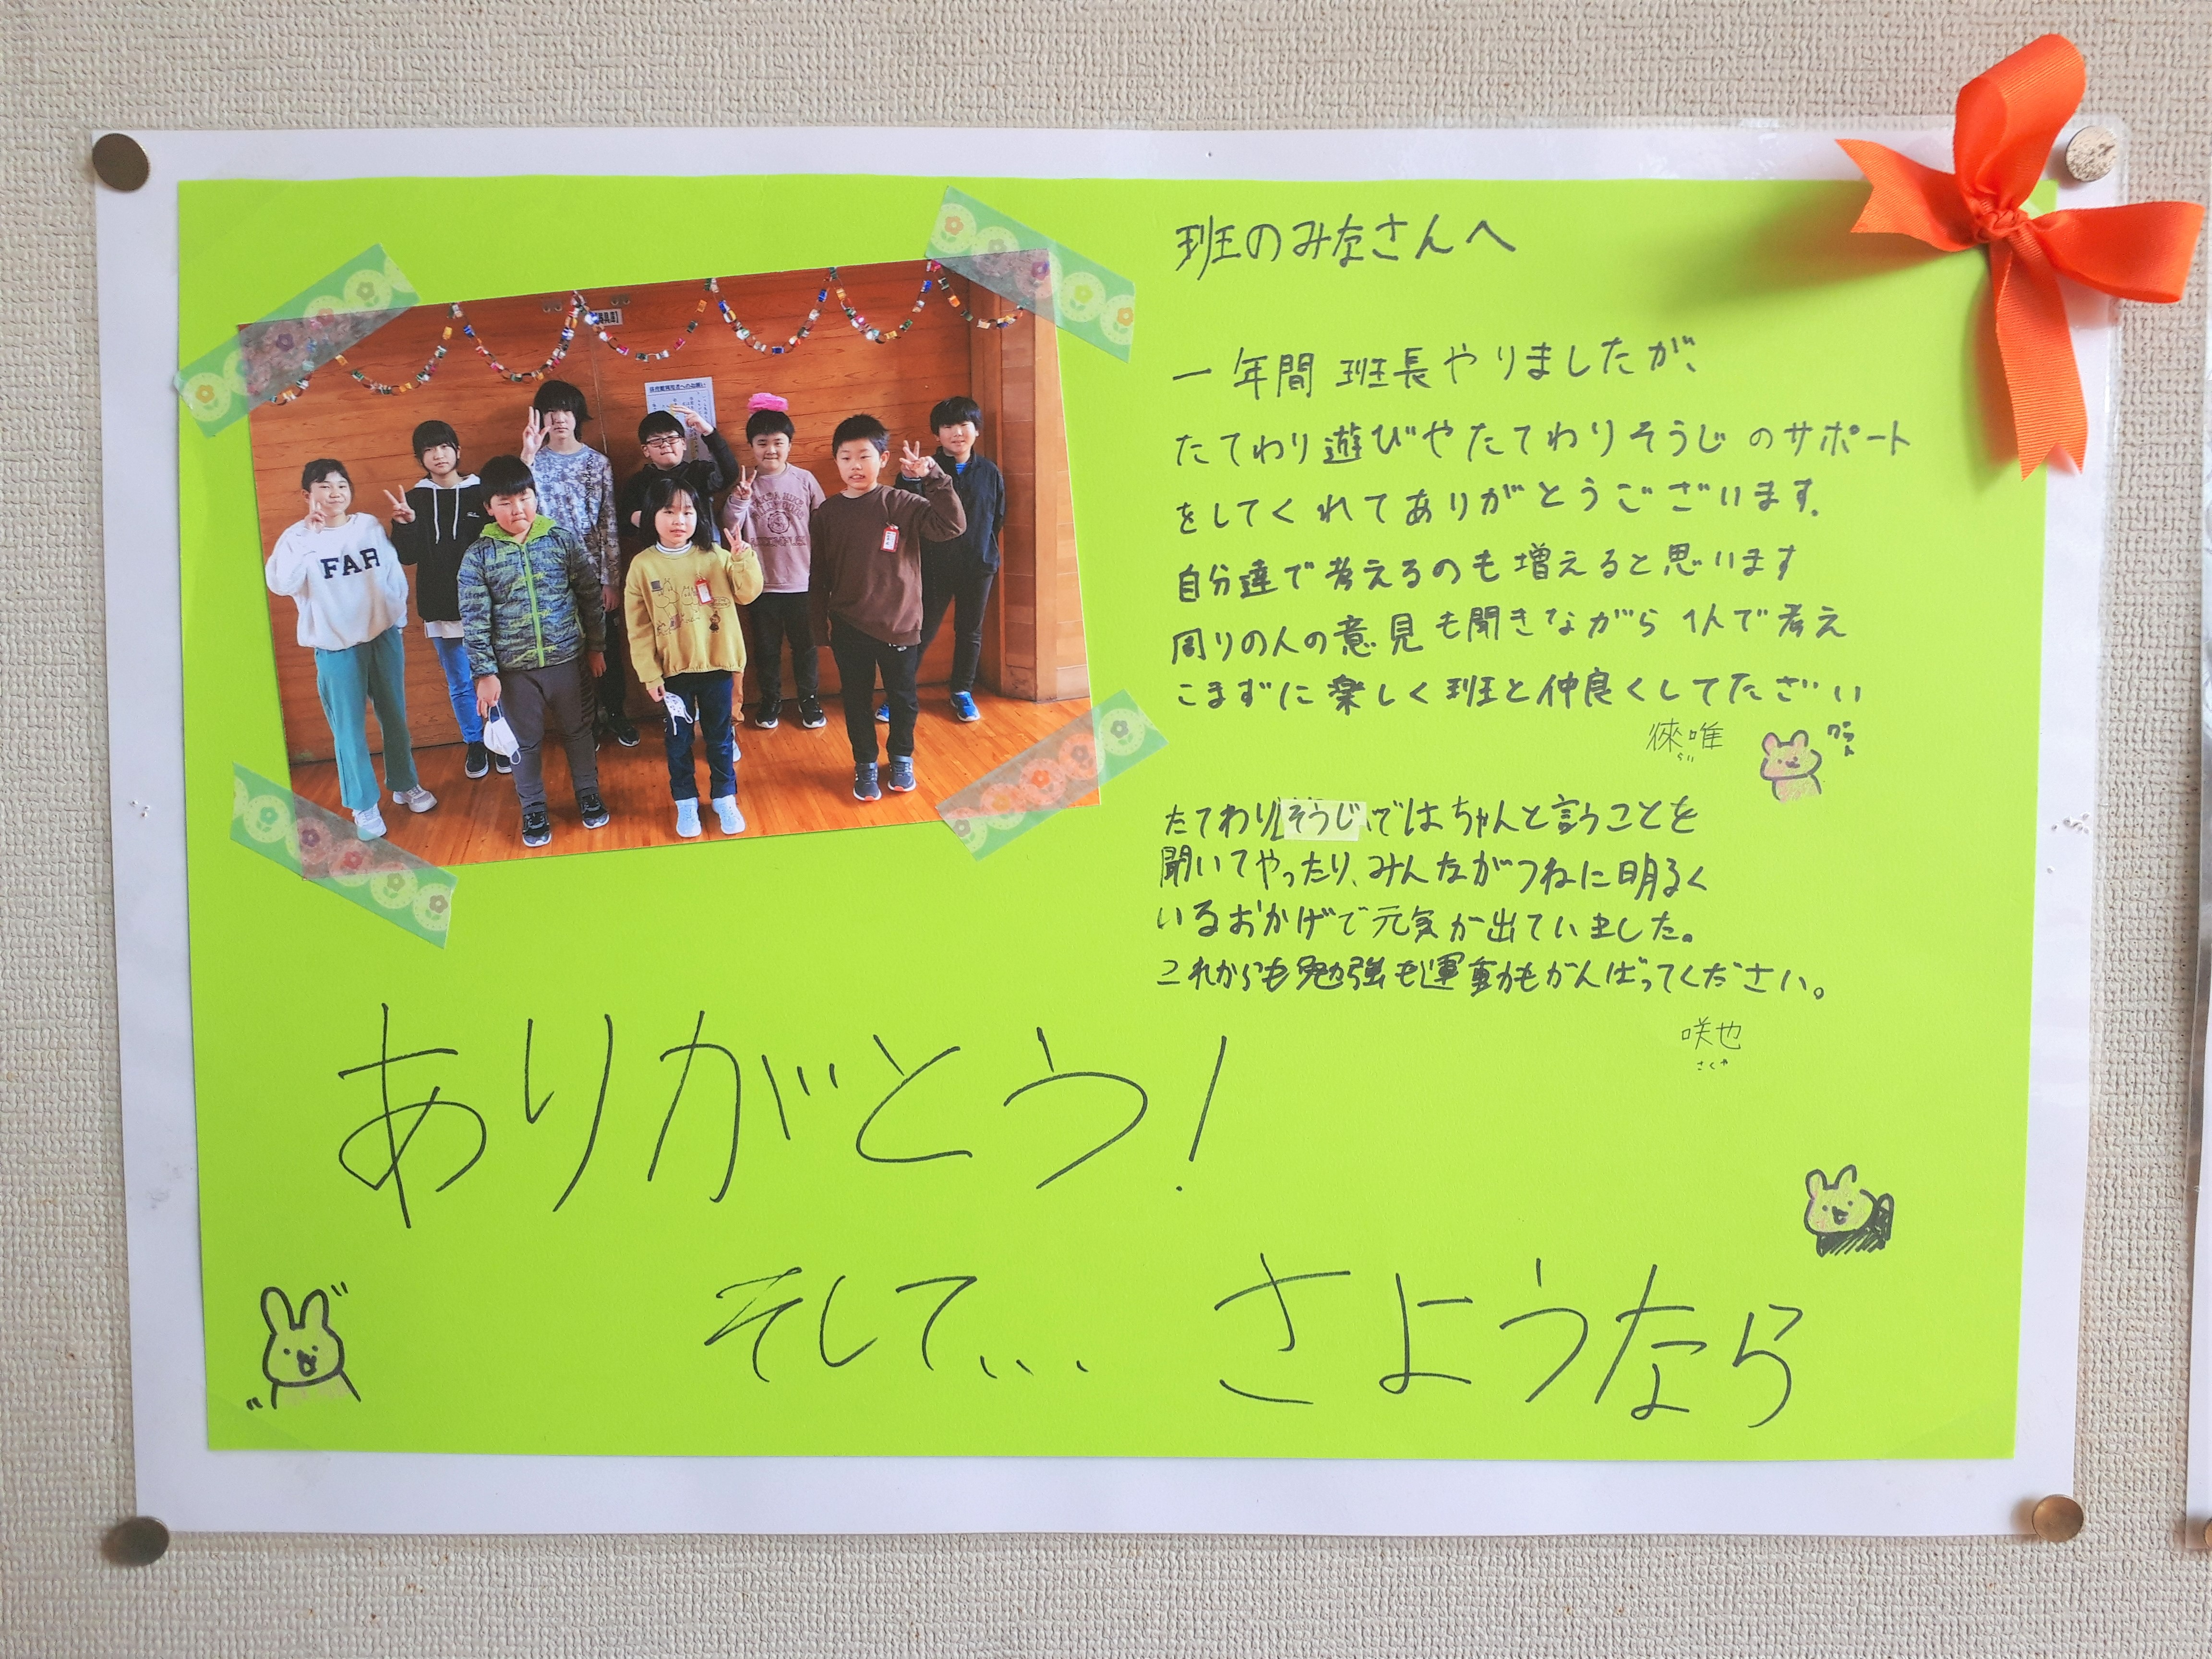 班のみなさんへ
一年間 班長やりましたが、
たてわり遊びやたてわりそうじのサポート
をしてくれてありがとうございます。
自分達で考えるのも増えると思います
周りの人の意見も聞きながら1人で考え
こまずに楽しく班と仲良くしてたざい
徠唯
らい
たてわりそうじではちゃんと言うことを
聞いてやったり、みんながつねに明るく
いるおかげで元気が出ていました。
これからも勉強も運動もがんばってください。
咲也
さくや
ありがとう!
そして... さようなら
FAR